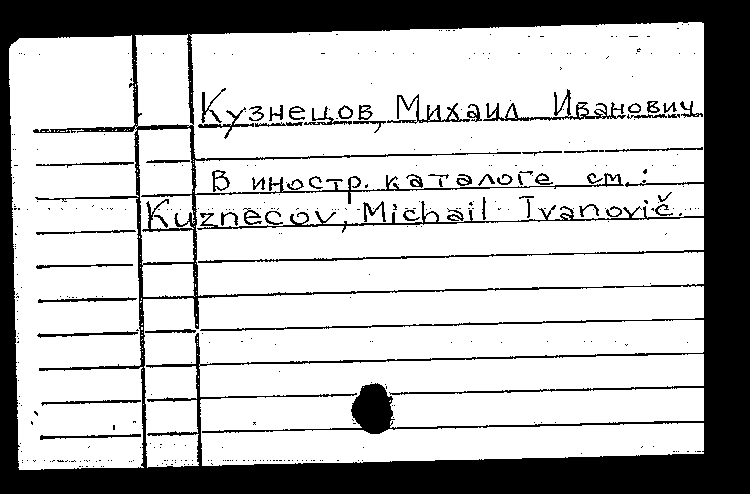 Кузнецов, Михаил Иванович
В иностр. каталоге см.:
Kuznecov, Michail Ivanovič.